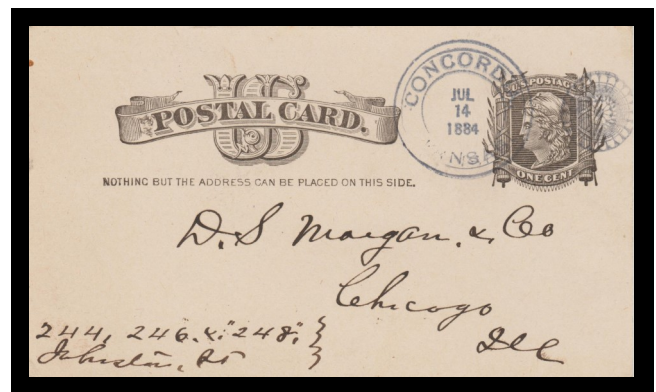 U.S.
POSTAL CARD.
NOTHING BUT THE ADDRESS CAN BE PLACED ON THIS SIDE.
CONCORD
JUL
14
1884
U.S. POSTAGE
ONE CENT
D. S Morgan. & Co
Chicago
Ill
244, 246. &."248".
Johnston, St